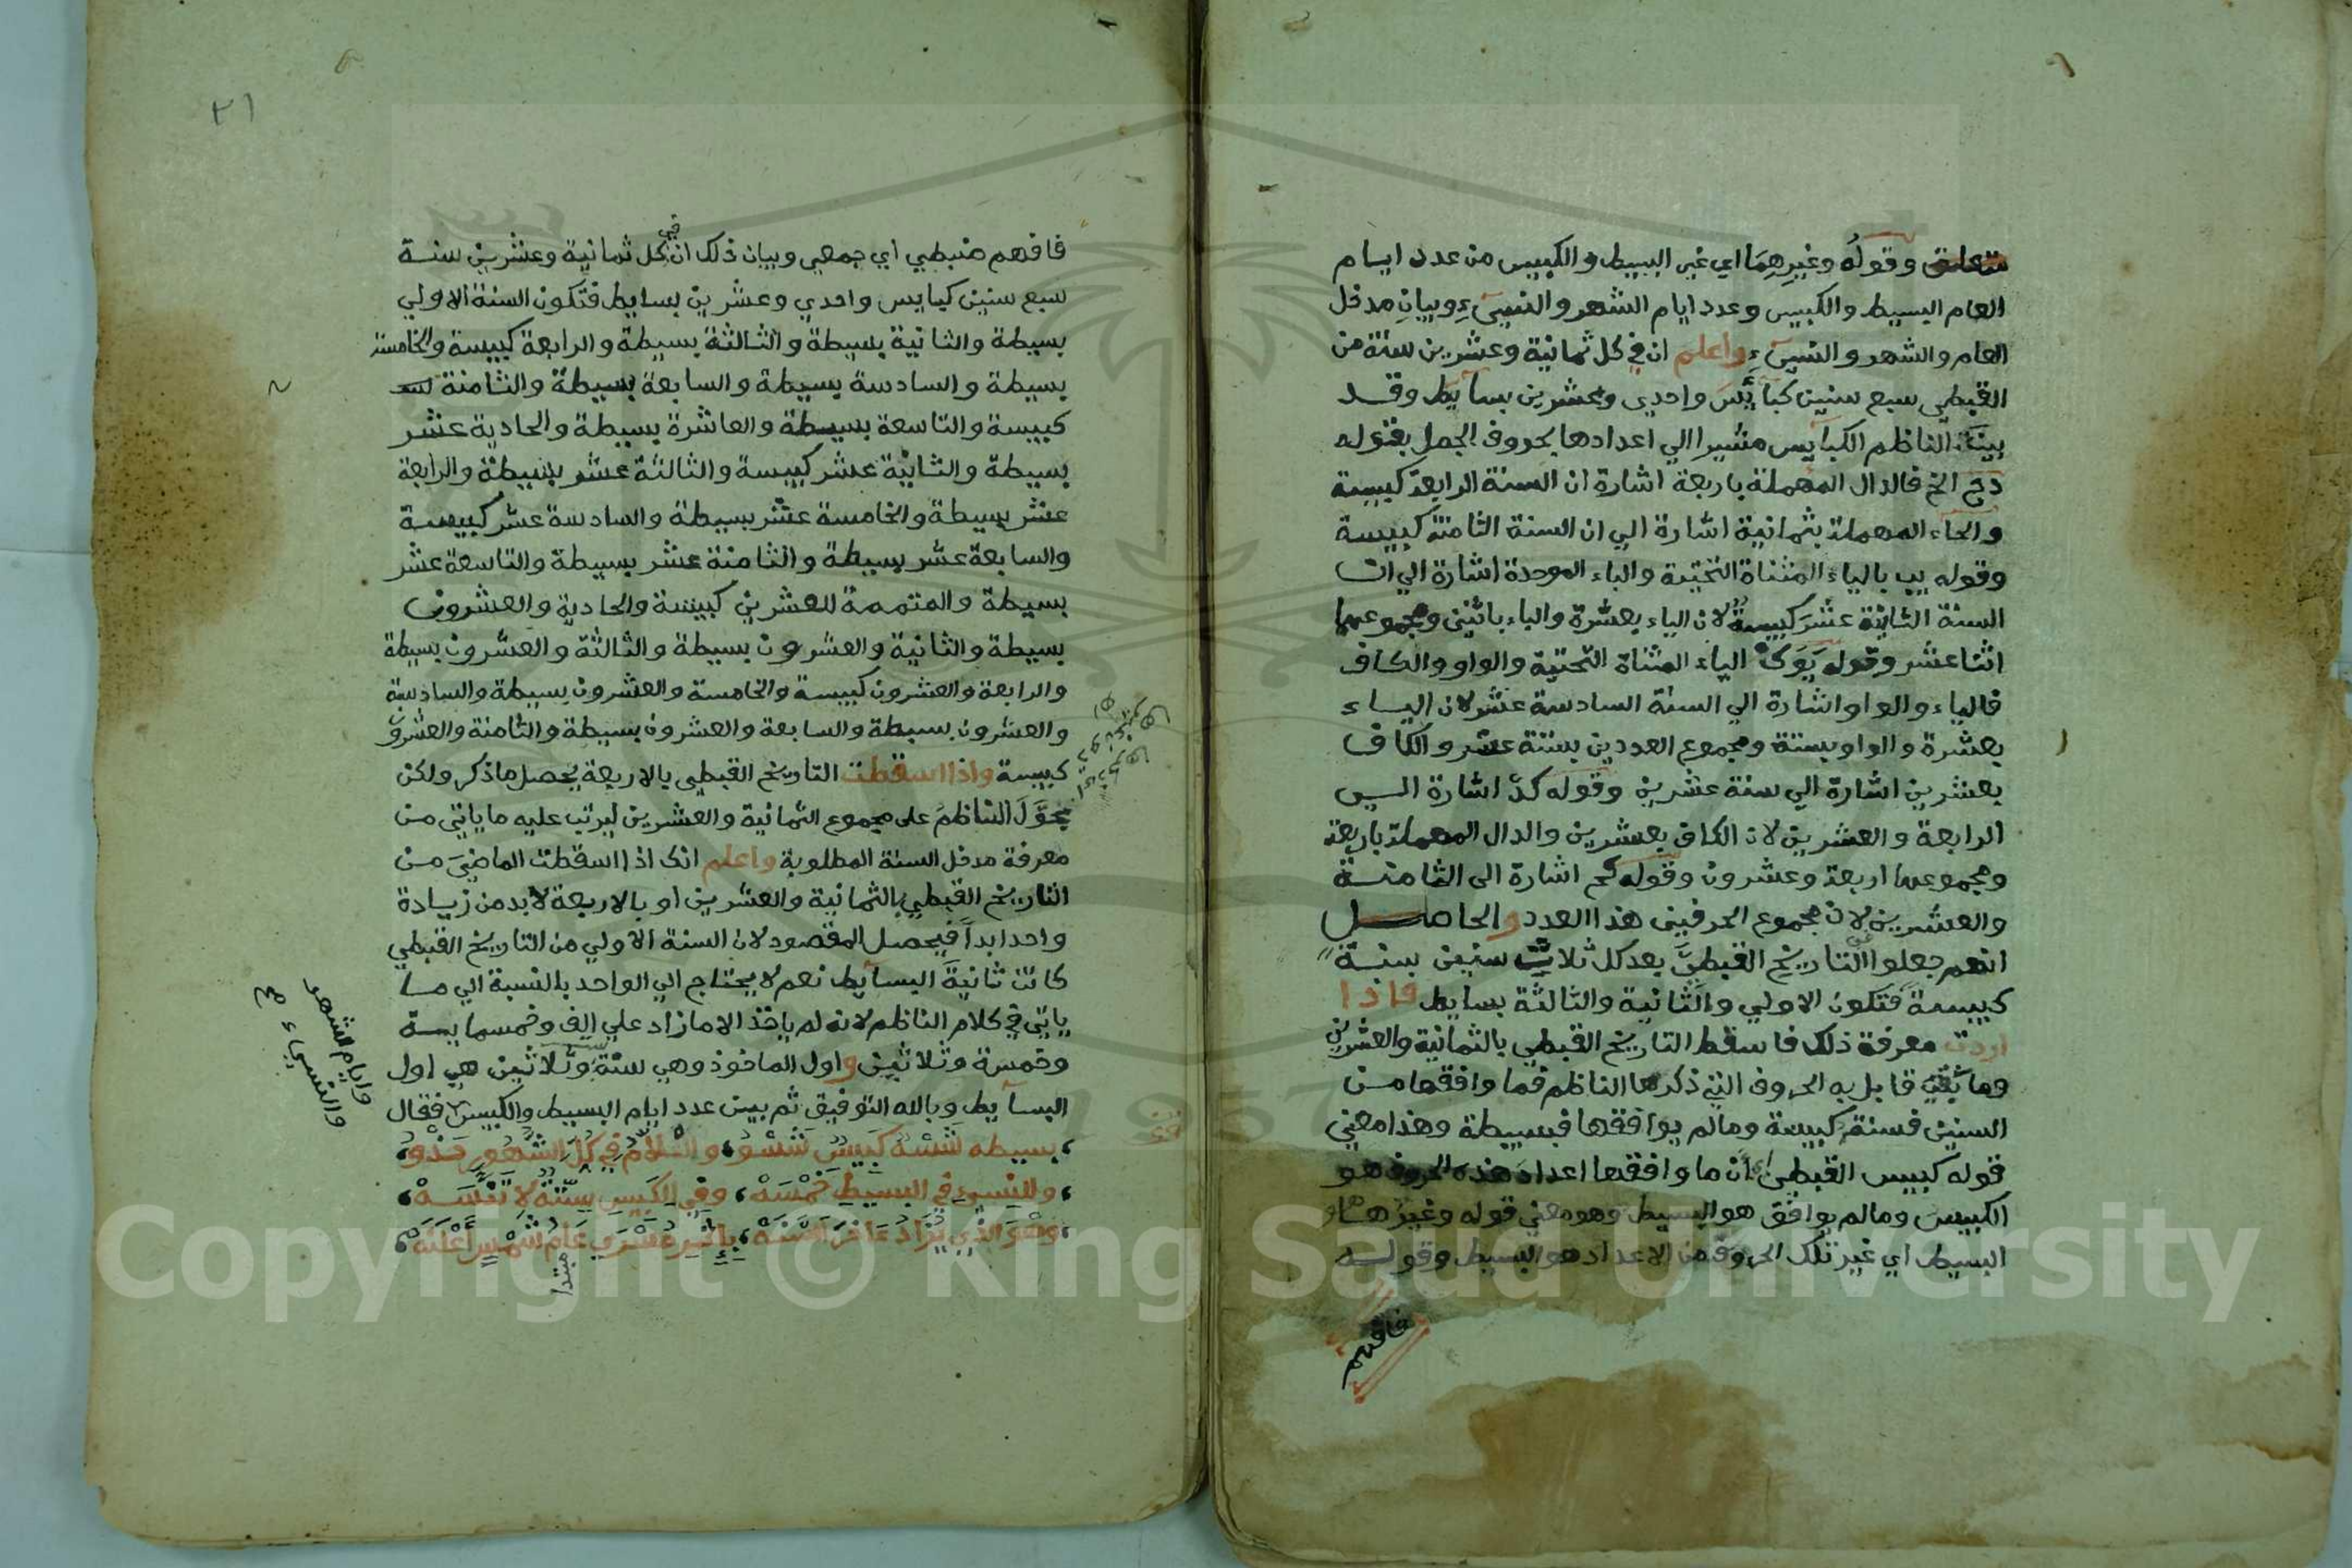 وقوله وغيرهما اي غير البسيط والكبيس من عدد ايام
العام البسيط والكبيس وعدد ايام الشهر والنسيء وبيان مدخل
العام والشهر والنسيء واعلم ان في كل ثمانية وعشرين سنة من
القبطي سبع سنين كبايس واحدي وعشرين بسايط وقد
بينه الناظم الكبايس مشيرا الي اعدادها بحروف الجمل بقوله
دح الخ فالدال المهملة باربعة اشارة ان السنة الرابعة كبيسة
والحاء المهملة بثمانية اشارة الي ان السنة الثامنة كبيسة
وقوله يب بالياء المثناة التحتية والباء الموحدة اشارة الي ان
السنة الثانية عشر كبيسة لان الياء بعشرة والباء باثنين ومجموعهما
اثنا عشر وقوله يوك الياء المثناة التحتية والواو والكاف
فالياء والواو اشارة الي السنة السادسة عشر لان الياء
بعشرة والواو بستة ومجموع العددين بستة عشر والكاف
بعشرين اشارة الي سنة عشرين وقوله كد اشارة الي
الرابعة والعشرين لان الكاف بعشرين والدال المهملة باربعة
ومجموعهما اربعة وعشرون وقوله كح اشارة الي الثامنة
والعشرين لان مجموع الحرفين هذا العدد والحاصل
انهم جعلوا التاريخ القبطي بعد كل ثلاث سنين سنة
كبيسة فتكون الاولي والثانية والثالثة بسايط فاذا
اردت معرفة ذلك فاسقط التاريخ القبطي بالثمانية والعشرين
وما بقي قابل به الحروف التي ذكرها الناظم فما وافقها من
السنين فسنة كبيسة وما لم يوافقها فبسيطة وهذا معني
قوله كبيس القبطي اي ان ما وافقها اعداد هذه الحروف هو
الكبيس وما لم يوافق هو البسيط وهو معني قوله وغير هاو
البسيط اي غير تلك الحروف من الاعداد هو البسيط وقوله
فافهم
٢١
فافهم منبطي اي جمعي وبيان ذلك ان في كل ثمانية وعشرين سنة
سبع سنين كبايس واحدي وعشرين بسايط فتكون السنة الاولي
بسيطة والثانية بسيطة والثالثة بسيطة والرابعة كبيسة والخامسة
بسيطة والسادسة بسيطة والسابعة بسيطة والثامنة
كبيسة والتاسعة بسيطة والعاشرة بسيطة والحادية عشر
بسيطة والثانية عشر كبيسة والثالثة عشر بسيطة والرابعة
عشر بسيطة والخامسة عشر بسيطة والسادسة عشر كبيسة
والسابعة عشر بسيطة والثامنة عشر بسيطة والتاسعة عشر
بسيطة والمتممة للعشرين كبيسة والحادية والعشرون
بسيطة والثانية والعشرون بسيطة والثالثة والعشرون بسيطة
والرابعة والعشرون كبيسة والخامسة والعشرون بسيطة والسادسة
والعشرون بسيطة والسابعة والعشرون بسيطة والثامنة والعشرون
كبيسة واذا اسقطت التاريخ القبطي بالاربعة يحصل ما ذكر ولكن
عول الناظم علي مجموع الثمانية والعشرين ليرتب عليه ما ياتي من
معرفة مدخل السنة المطلوبة واعلم انك اذا اسقطت الماضي من
التاريخ القبطي بالثمانية والعشرين او بالاربعة لا بد من زيادة
واحد ابدا فيحصل المقصود لان السنة الاولي من التاريخ القبطي
كانت ثانية البسايط نعم لا يحتاج الي الواحد بالنسبة الي ما
ياتي في كلام الناظم لانه لم ياخذ الا ما زاد علي الف وخمسماية
وخمسة وثلاثين واول الماخوذ وهي ستة وثلاثين هي اول
البسايط وبالله التوفيق ثم بين عدد ايام البسيط والكبيس فقال
وايام الشهر
والنسيء صح
بسيطه شسه كبيس شسو، في كل الشهور
وللنسي في البسيط خمسه، وفي الكبيس ستة لا تنسه
وهو الذي يزاد ءاخر السنه، عام شمس اعلنه
مبتدا
Copyright © King Saud University
1957